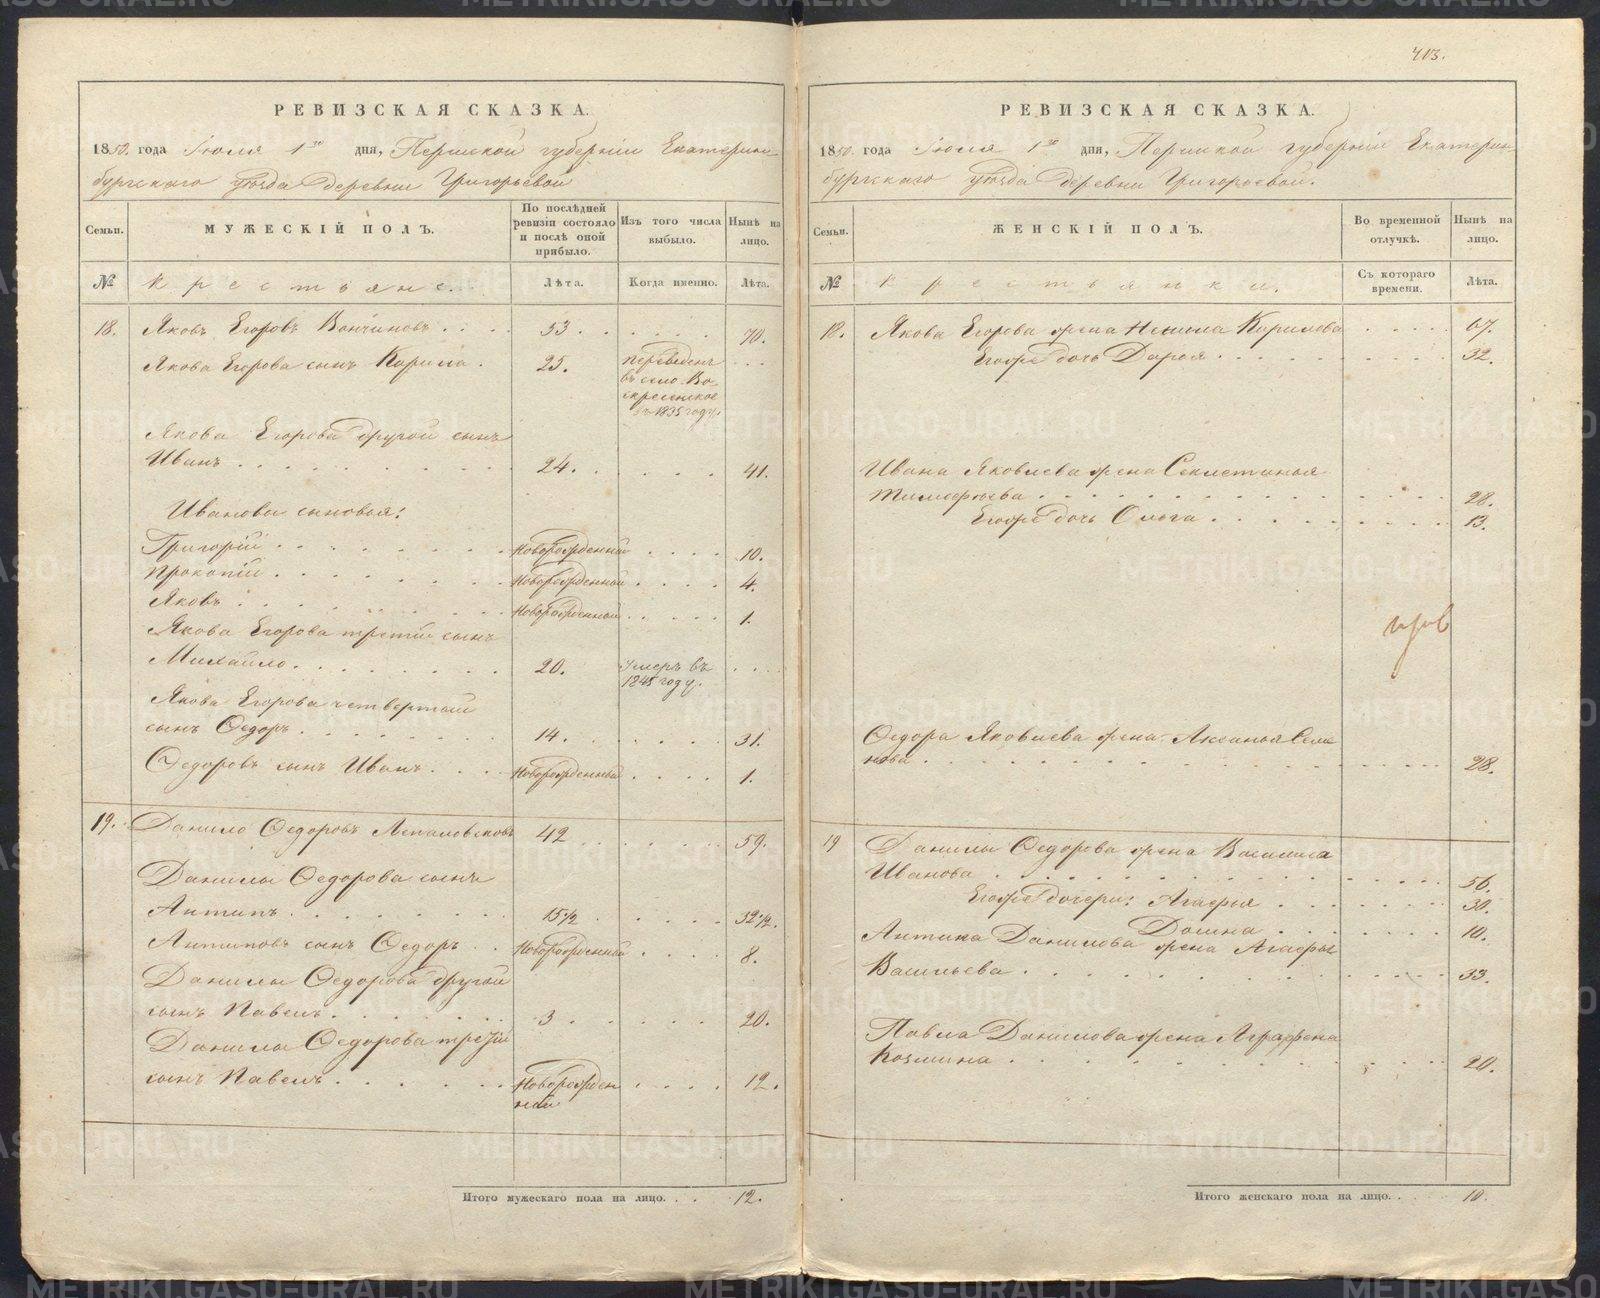 413.
РЕВИЗСКАЯ СКАЗКА.
1850. года Іюля 1го дня, Пермской губерніи Екатерин-
бургскаго уѣзда деревни Григорьевой
Семьи. МУЖЕСКІЙ ПОЛЪ. По послѣдней ревизіи состояло и послѣ оной прибыло. Изъ того числа выбыло. Нынѣ на лицо.
№ Крестьяне. Лѣта. Когда именно. Лѣта.
18. Яковъ Егоровъ 53. 70.
Якова Егорова сынъ Карила. 25. переведенъ
въ село Во-
скресенское
въ 1835 году.
Якова Егорова другой сынъ
Иванъ 24. 41.
Ивановы сыновья:
Григорій новорожденный 10.
Прокопій новорожденный 4.
Яковъ новорожденный 1.
Якова Егорова третій сынъ
Михайло. 20. умеръ въ
1845 году.
Якова Егорова четвертый
сынъ Ѳедоръ. 14. 31.
Ѳедоровъ сынъ Иванъ. новорожденный 1.
19. Данило Ѳедоровъ 42 59.
Данилы Ѳедорова сынъ
Антипъ. 15 1/2 32 1/2.
Антиповъ сынъ Ѳедоръ новорожденный 8.
Данилы Ѳедорова другой
сынъ Павелъ. 3 20.
Данилы Ѳедорова третій
сынъ Павелъ. новорожден
ный 12.
Итого мужескаго пола на лицо. 12.
РЕВИЗСКАЯ СКАЗКА.
1850. года Іюля 1го дня, Пермской губерніи Екатерин-
бургскаго уѣзда деревни Григорьевой.
Семьи. ЖЕНСКІЙ ПОЛЪ. Во временной отлучкѣ. Нынѣ на лицо.
№ Крестьянки. Съ котораго времени. Лѣта.
18. Якова Егорова жена Карилова 67.
Егоже дочь Дарья. 32.
Ивана Яковлева жена Секлетинья
Тимофеева 28.
Егоже дочь Ольга. 13.
Ѳедора Яковлева жена Аксинья Семе
нова. 28.
19 Данилы Ѳедорова жена Василиса
Иванова 56.
Егоже дочери: Агафья 30.
Домна 10.
Антипа Данилова жена Агафья
Васильева. 33.
Павла Данилова жена Аграфена
Козмина 20.
Итого женскаго пола на лицо. 10.
METRIKI.GASO-URAL.RU